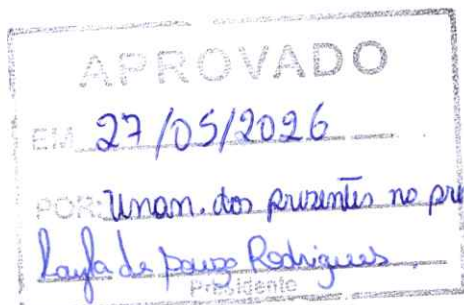 APROVADO
EM 27/05/2026
POR: Unan. dos presentes no
de Souza Rodrigues
Presidente